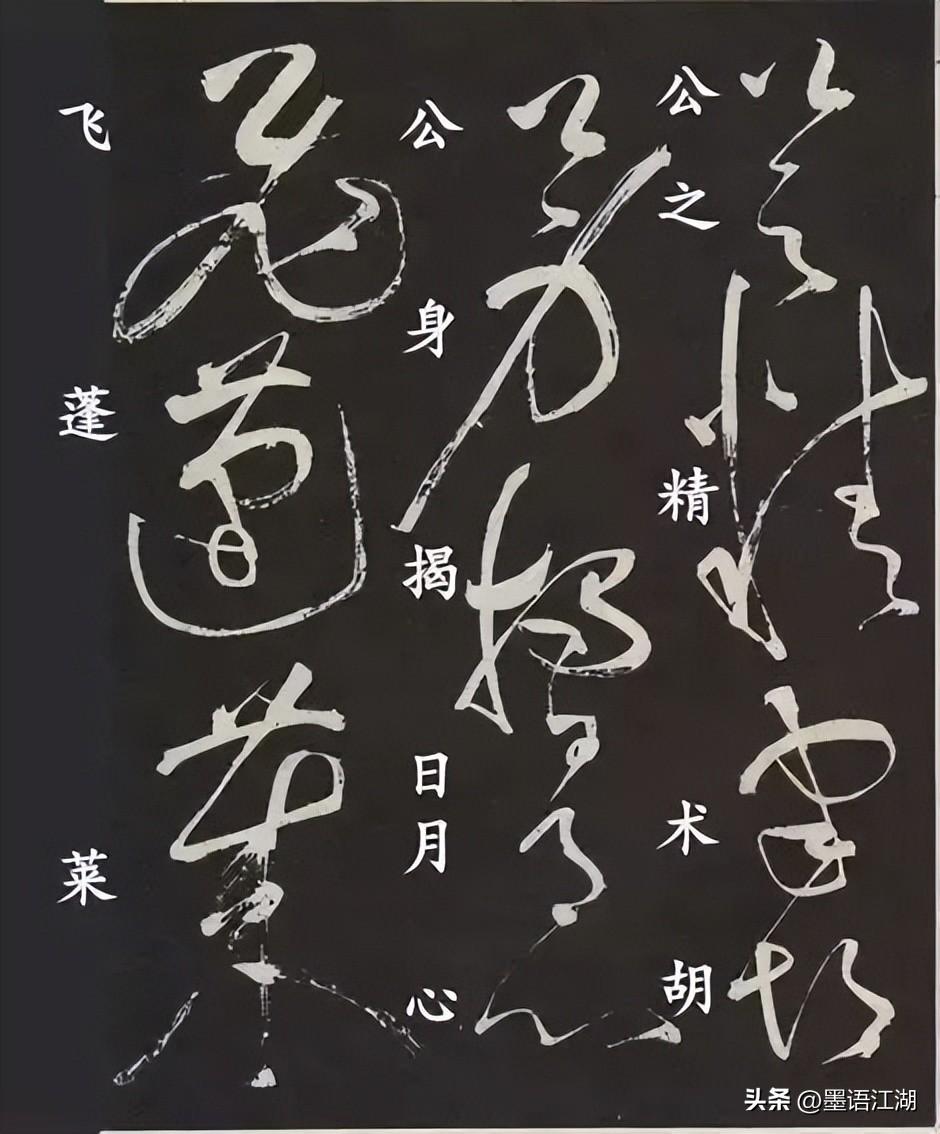 公之精术胡
公身揭日月心
飞蓬莱
头条 @墨语江湖